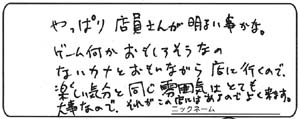 やっぱり店員さんが明るい事かな。
ゲーム何かおもしろそうなの
ないカナとおもいながら店に行くので、
楽しい気分と同じ雰囲気はとても
大事なので、それがこの店にはあるのでよく来ます。
ニックネーム